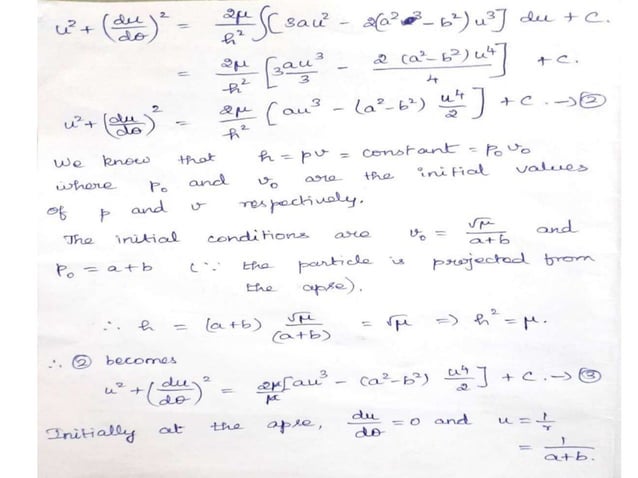 u² + (du/dθ)² = 2μ/h² ∫[3au² - 2(a² - b²)u³] du + c.
= 2μ/h² [3 au³/3 - 2(a²-b²)u⁴/4] + c.
u² + (du/dθ)² = 2μ/h² [au³ - (a²-b²) u⁴/2] + c. → ②
We know that h = pv = constant = p₀v₀
where p₀ and v₀ are the initial values
of p and v respectively.
The initial conditions are v₀ = √μ/a+b and
p₀ = a+b (∵ the particle is projected from
the apse).
∴ h = (a+b) √μ/(a+b) = √μ ⇒ h² = μ.
∴ ② becomes
u² + (du/dθ)² = 2μ/μ [au³ - (a²-b²) u⁴/2] + c. → ③
Initially at the apse, du/dθ = 0 and u = 1/r
= 1/a+b.